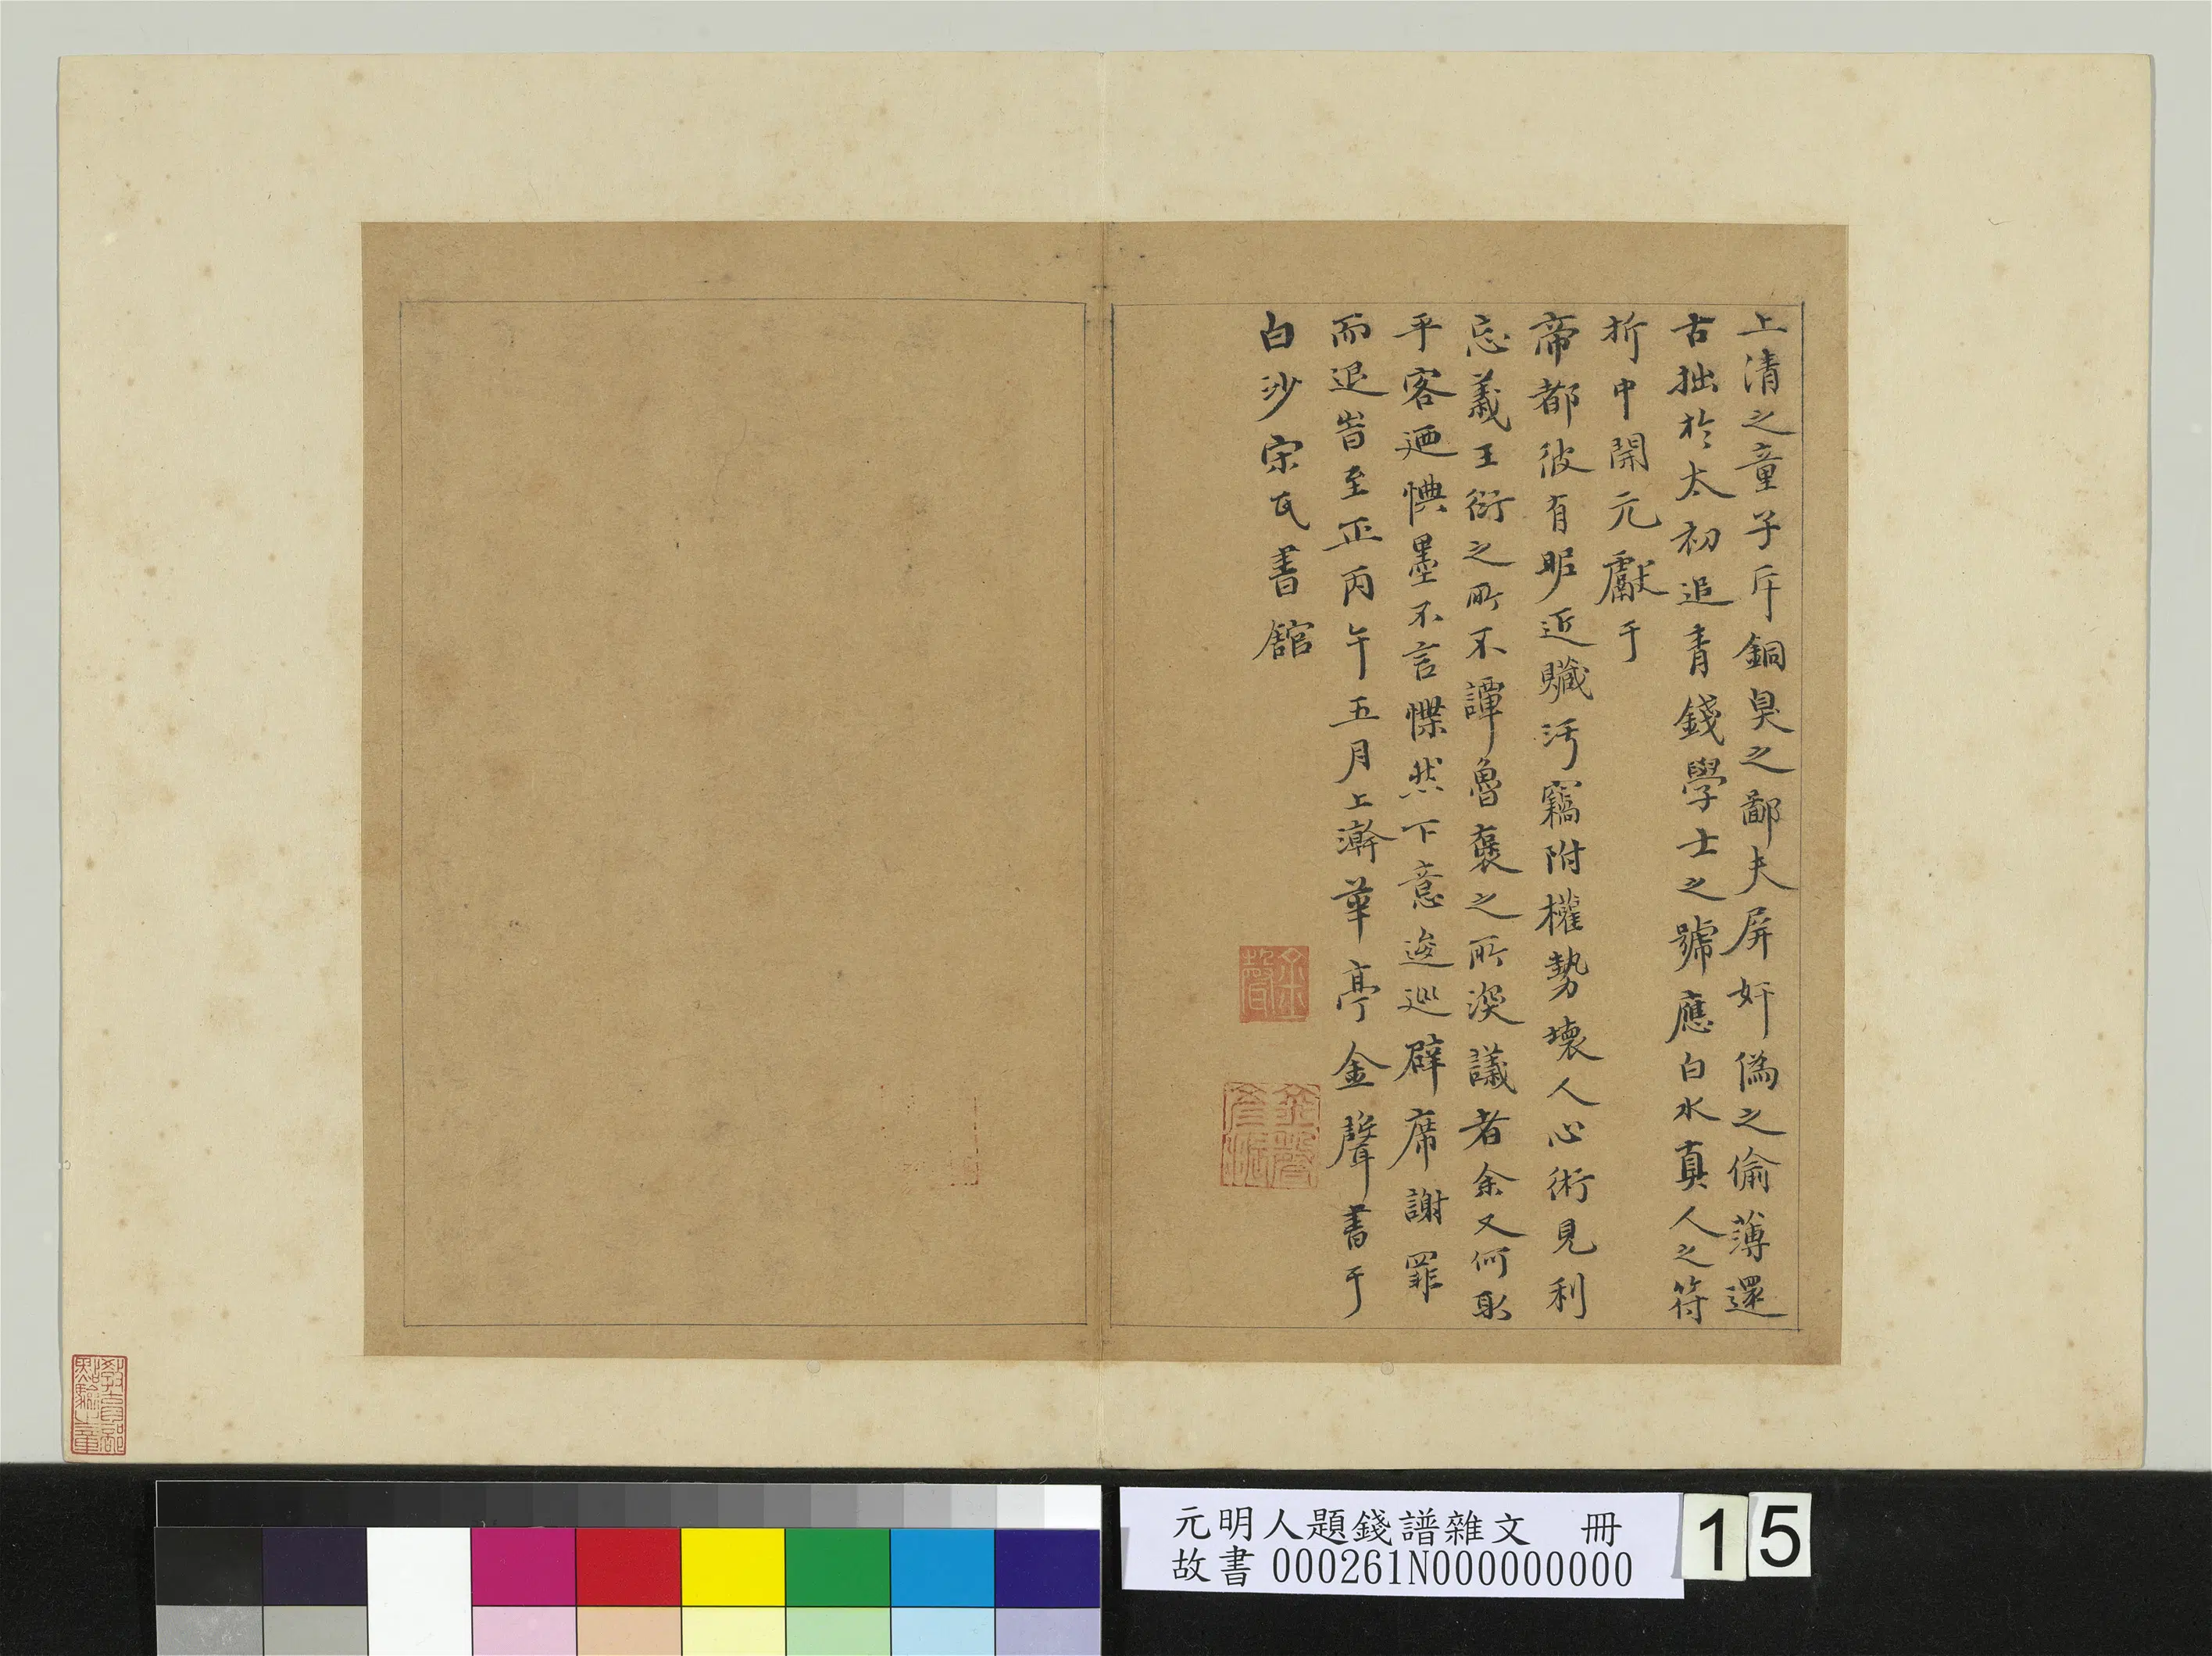 上清之童子斥銅臭之鄙夫屏奸偽之偷薄還
古拙於太初追青錢學士之號應白水真人之符
析中開元獻于
帝都彼有昵近贓污竊附權勢壞人心術見利
忘義王衍之所不譚魯褒之所深議者余又何取
乎客迺惧墨不言慄然下意逡巡辟席謝罪
而退旹至正丙午五月上澣華亭金聲書于
白沙宋氏書館
元明人題錢譜雜文 冊
故書 000261N000000000
15
教育部點驗之章